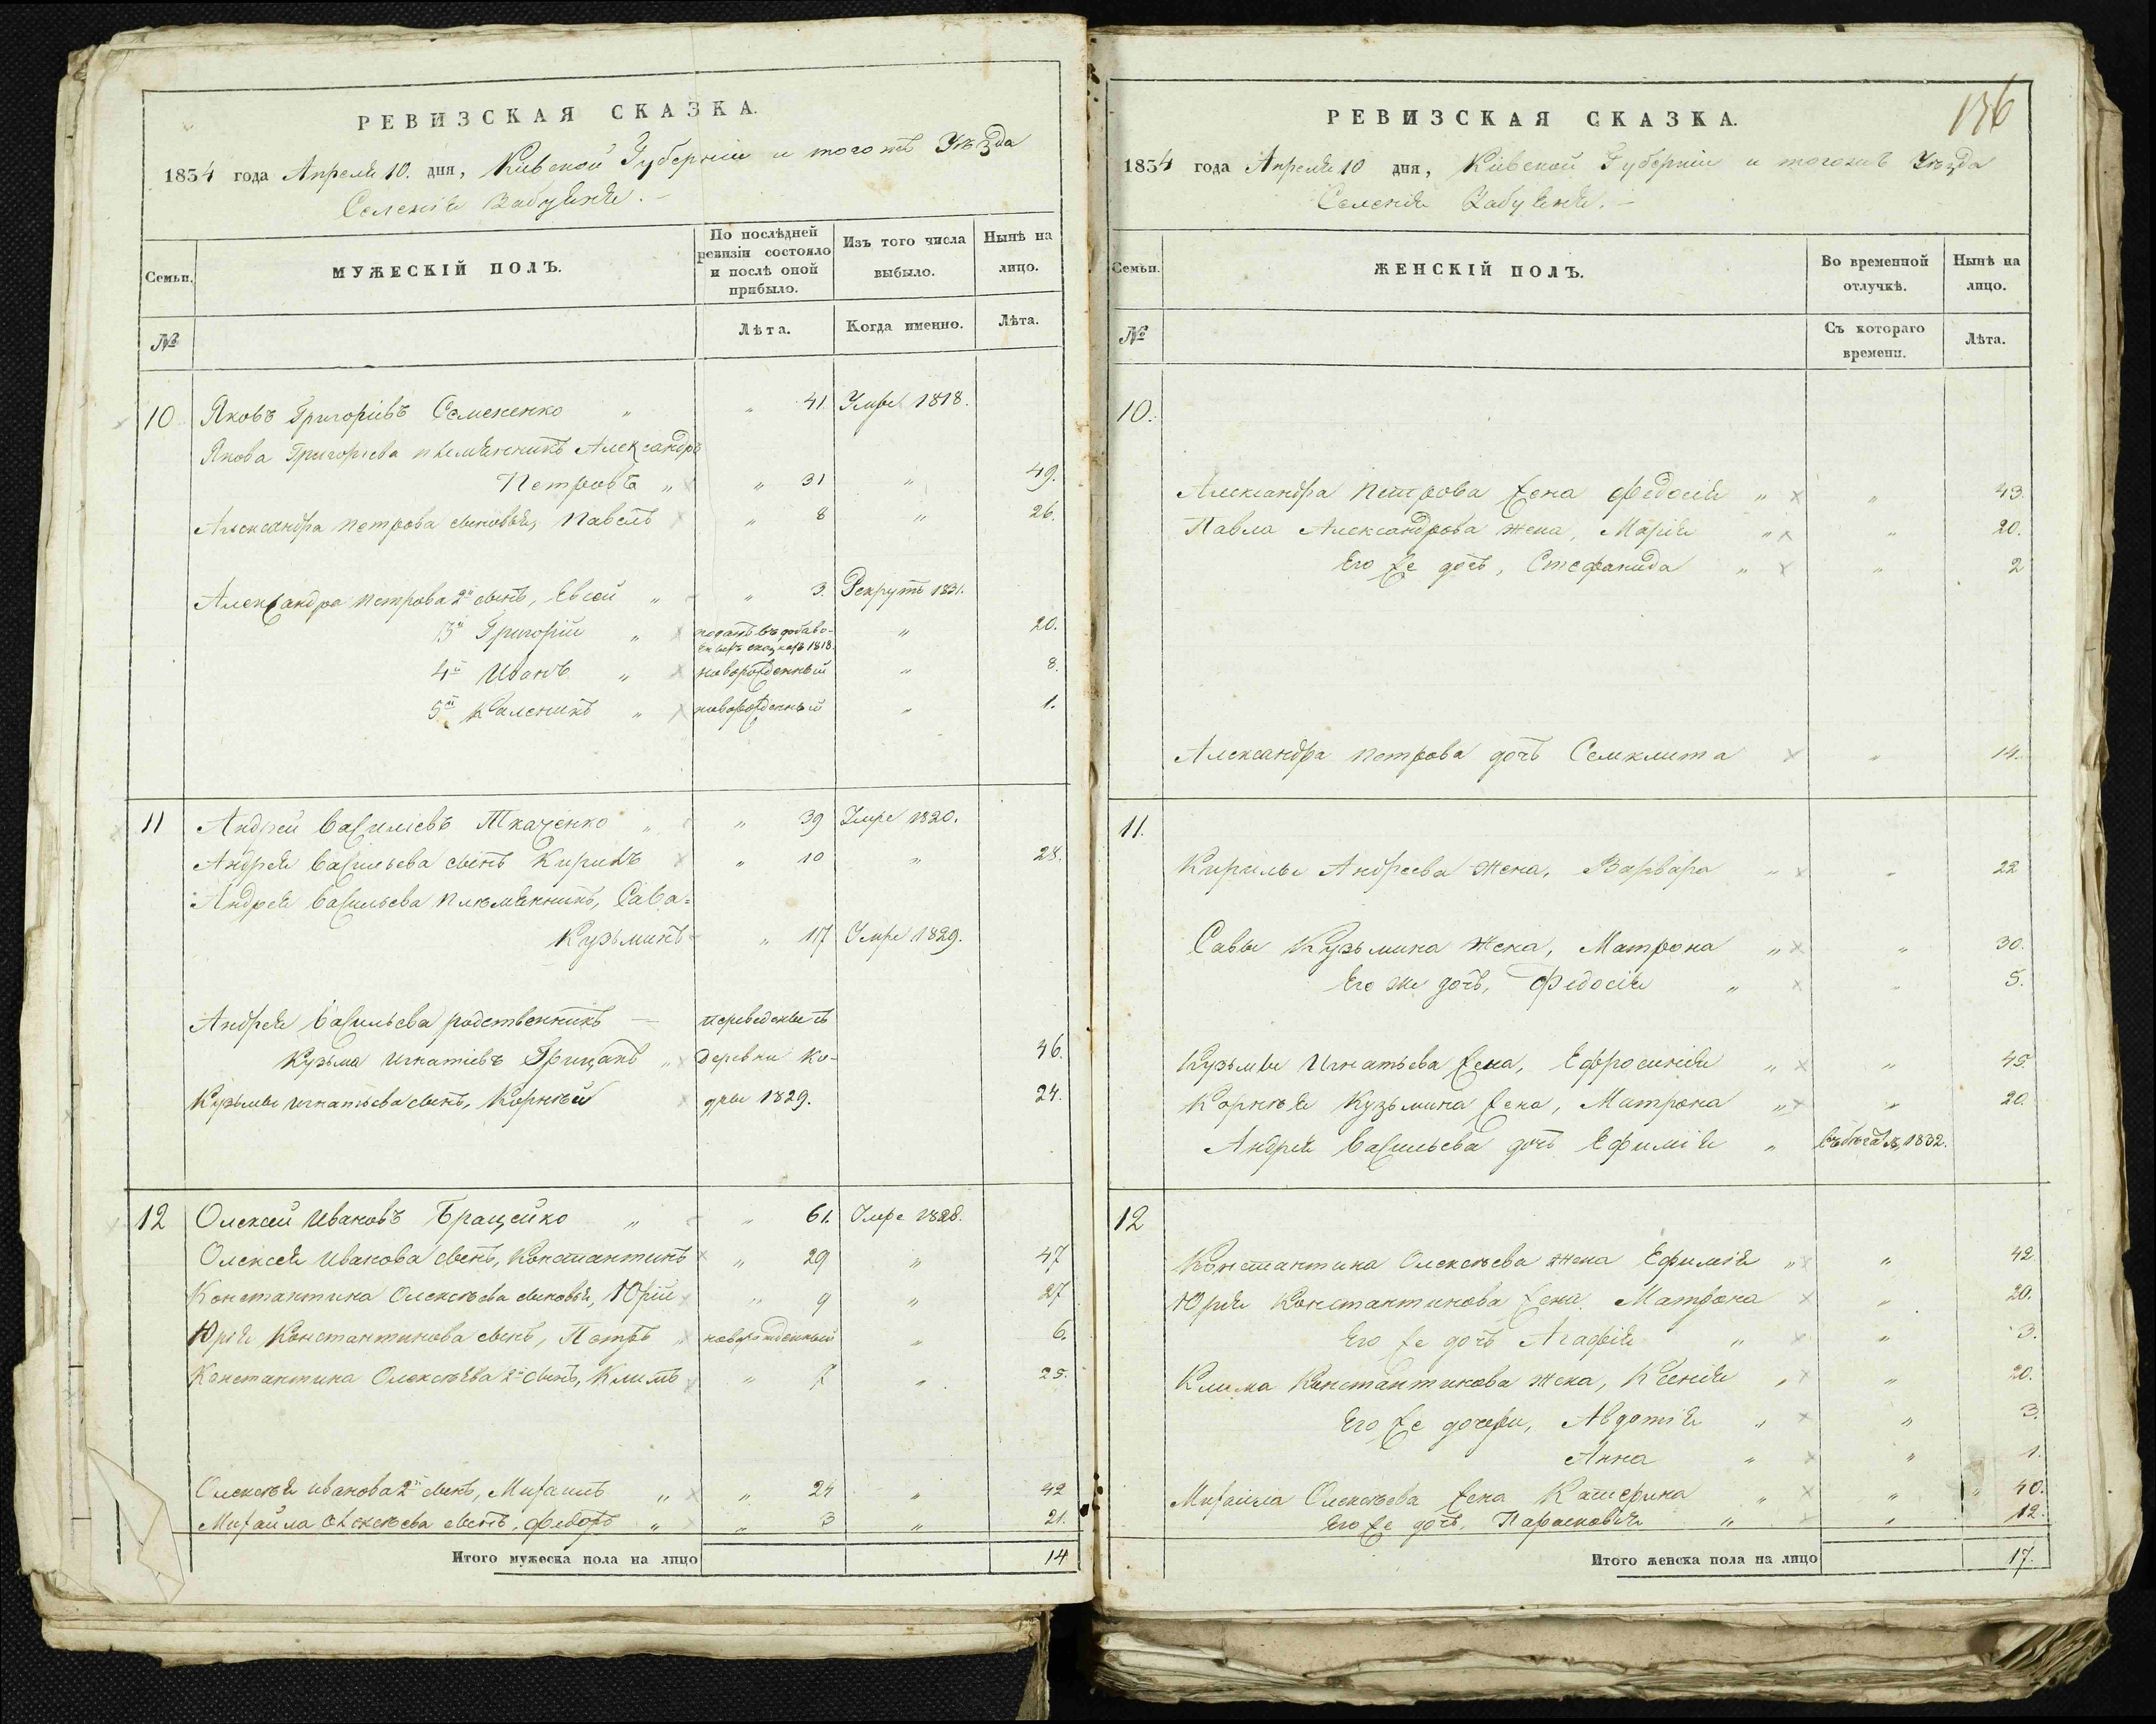 РЕВИЗСКАЯ СКАЗКА.
1834 года Апреля 10. дня, Кіевской Губерніи и тогожъ Уѣзда
Селенія Забуянья.
Семьи.
МУЖЕСКІЙ ПОЛЪ.
По послѣдней ревизіи состояло и послѣ оной прибыло.
Изъ того числа выбыло.
Нынѣ на лицо.
№
Лѣта.
Когда именно.
Лѣта.
10 Яковъ Григоріевъ Семененко " " 41 Умре 1818.
Якова Григорьева племянникъ Александръ
Петровъ " " 31 " 49.
Александра Петрова сыновья, Павелъ " 8 " 26.
Александра Петрова 2й сынъ, Евсей " " 3. Рекрутъ 1831.
3й Григорій " поданъ въ добаво- " 20.
скаскахъ 1818.
4й Иванъ " новорожденный " 8.
5й Каленикъ " новорожденный " 1.
11 Андрей Васильевъ Ткаченко " " 39 Умре 1820.
Андрея Васильева сынъ Кирилъ " 10 " 28.
Андрея Васильева племянникъ, Сава-
Кузьминъ " 17 Умре 1829.
Андрея Васильева родственникъ — переведены съ
Кузьма Игнатіевъ Грицакъ " деревни Ко- 46.
Кузьмы Игнатьева сынъ, Корнѣй 1829. 24.
12 Олексей Ивановъ Бращейко " " 61. Умре 1828.
Олексея Иванова сынъ, Константинъ " 29 " 47
Константина Олексѣева сыновья, Юрій " 9 " 27
Юрія Константинова сынъ, Петръ " новорожденный " 6.
Константина Олексѣева 2й сынъ, Климъ " 7 " 25.
Олексѣя Иванова 2й сынъ, Михаилъ " " 24 " 42
Михайла Олексѣева сынъ, Федоръ " " 3 " 21.
Итого мужеска пола на лицо 14
136
РЕВИЗСКАЯ СКАЗКА.
1834 года Апреля 10 дня, Кіевской Губерніи и тогожъ Уѣзда
Селенія Забуянья.
Семьи.
ЖЕНСКІЙ ПОЛЪ.
Во временной отлучкѣ.
Нынѣ на лицо.
№
Съ котораго времени.
Лѣта.
10.
Александра Петрова жена Федосія " " 43.
Павла Александрова жена, Марія " " 20.
Его же дочь, Стефанида " " 2
Александра Петрова дочь Семклита " 14.
11.
Кирилы Андреева жена, Варвара " " 22
Савы Кузьмина жена, Матрона " " 30.
Его же дочь, Федосія " " 5.
Кузьмы Игнатьева жена, Ефросинія " " 45
Корнѣя Кузьмина жена, Матрона " " 20.
Андрея Васильева дочь Ефимія " въ бѣгахъ, 1832.
12
Константина Олексѣева жена Ефимія " " 42
Юрія Константинова жена Матрона " 20.
Его же дочь Агафія " " 3.
Клима Константинова жена, Ксенія " " 20.
Его же дочери, Авдотія " " 3.
Анна " " 1.
Михайла Олексѣева жена Катерина " " 40.
Его же дочь, Парасковія " " 12.
Итого женска пола на лицо 17.